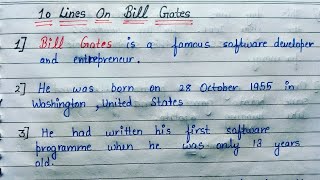 10 Lines On Bill Gates
1] Bill Gates is a famous software developer
and entrepreneur.
2] He was born on 28 October 1955 in
Washington, United States
3] He had written his first software
programme when he was only 13 years
old.